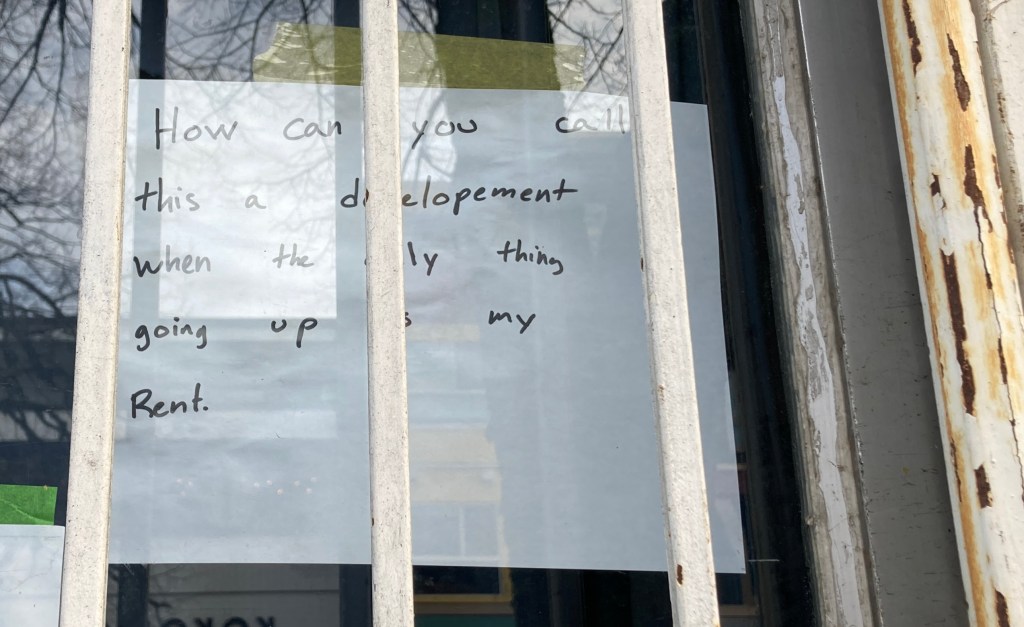 How can you call
this a developement
when the only thing
going up is my
Rent.